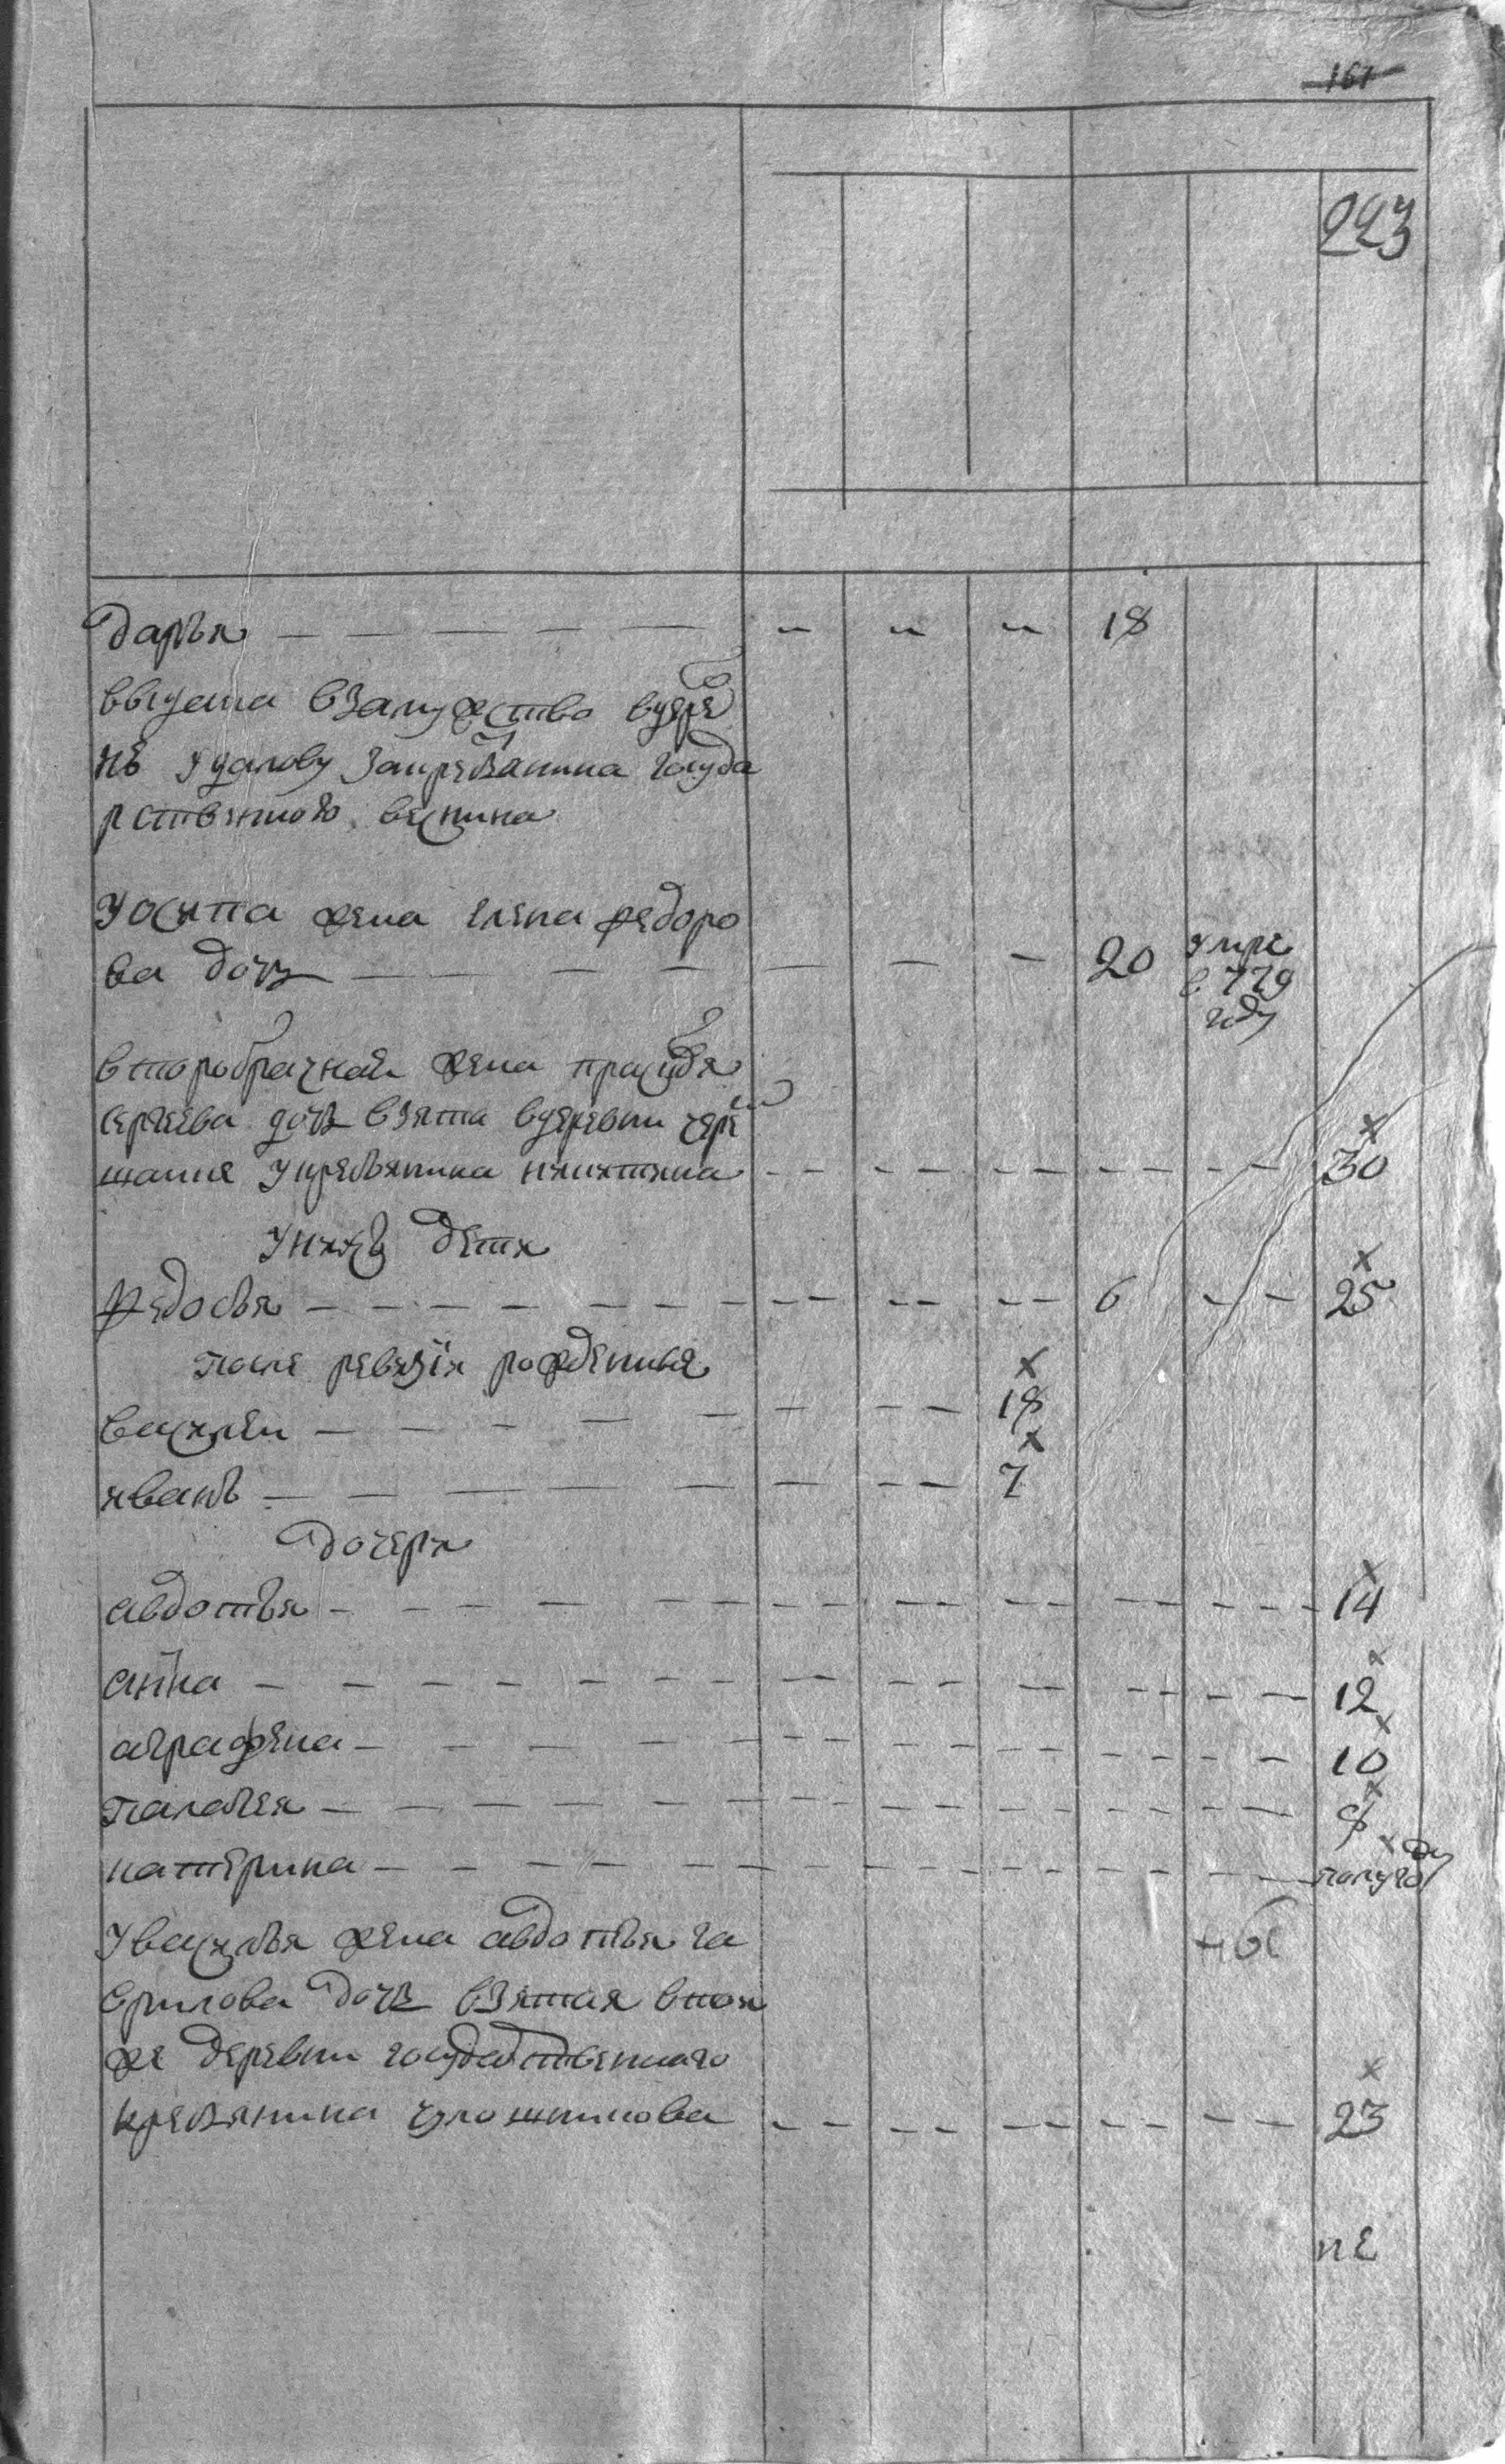 161
223
дарья — — — — — 18
выдана взамужство вдерев
ню удалову закрестьянина государ
рственного
уосипа жена елена федоро
ва дочь — — — — — — — 20 умре
в 779
году
второбрачная жена прасковья
сергеева дочь взята вдеревни
укрестьянина — — — — — — 30
уних дети
федосья — — — — — — — 6 — — 25
после ревизiи рожденные
василеи — — — — — — — 18
иванъ — — — — — — — 7
дочери
авдотья — — — — — — — 14
анна — — — — — — — 12
аграфена — — — — — — — 10
палагея — — — — — — — 8
катерина — — — — — — — полугоду
увасилья жена авдотья га
врилова дочь взятая втои
же деревни государственного
крестьянина — — — — — — 23